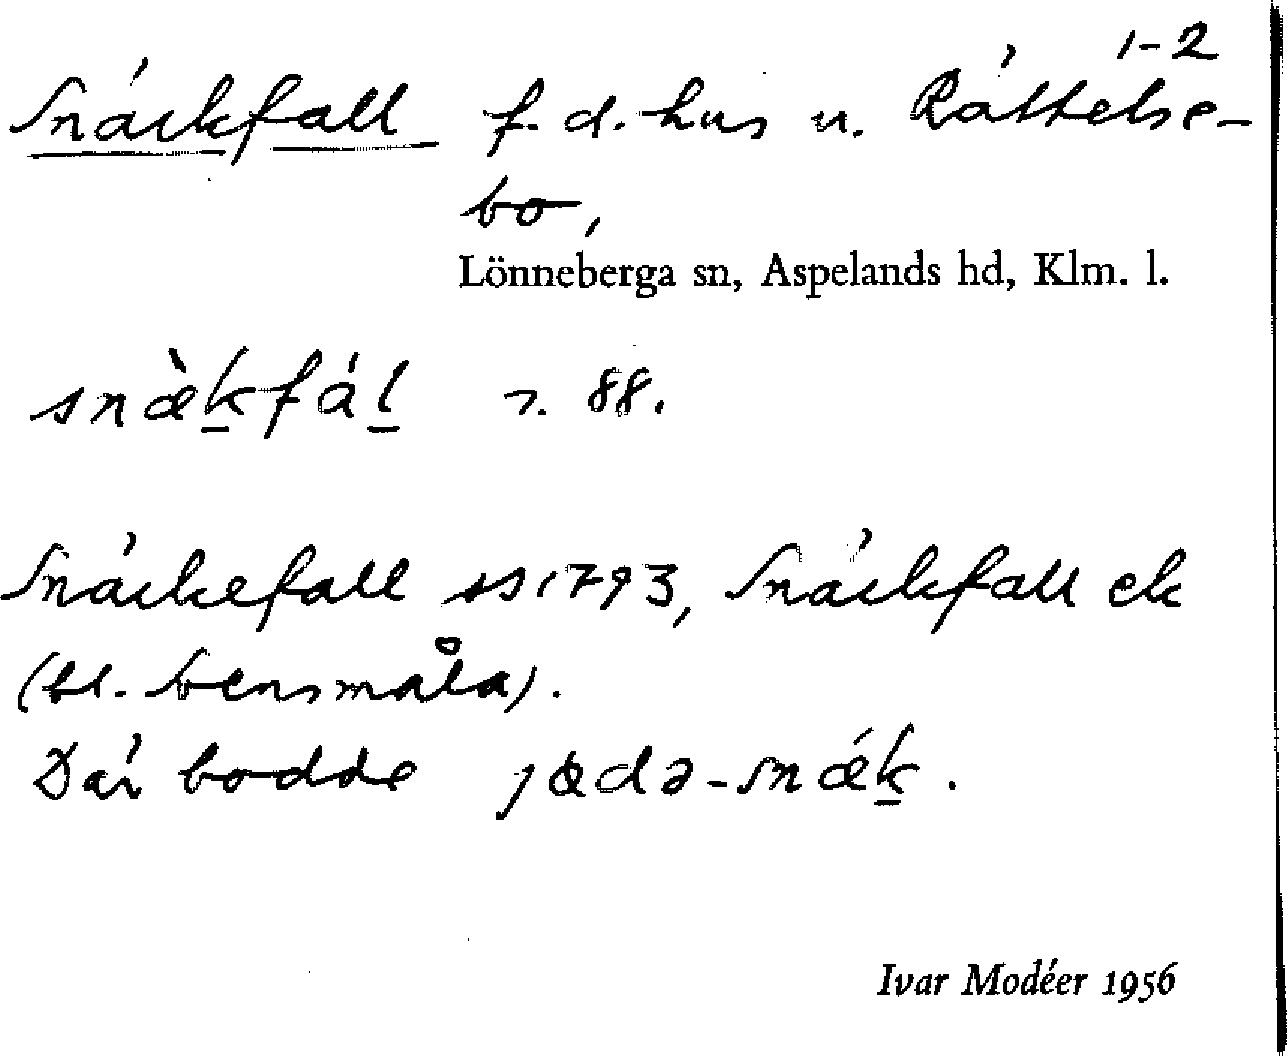 1-2
Snäckfall f. d. hus u. Råttelse-
bo,
Lönneberga sn, Aspelands hd, Klm. l.
snæ̀k̲fál̲ r. 88.
Snäckefall ss 1793, Snäckfall ek
(bl. Svensmåla).
Där bodde jɷdə-snǽk̲.
Ivar Modéer 1956